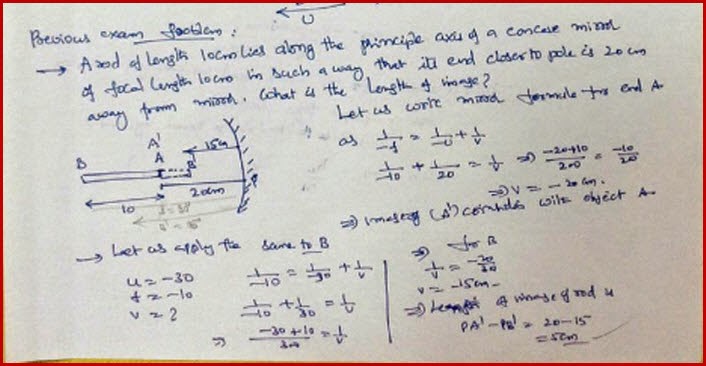 U
Previous exam problem :
→ A rod of length 10cm lies along the principle axis of a concave mirror
of focal length 10cm in such a way that its end closer to pole is 20 cm
away from mirror. What is the length of image?
Let us write mirror formula for end A
as 1/-f = 1/-u + 1/v
1/-10 + 1/20 = 1/v ⇒ -20+10/200 = -10/20
⇒ v = -20cm.
A'
B A B' 15cm
20cm P
10
⇒ Image of (A') coincides with object A
→ Let us apply the same to B
u = -30
f = -10
v = ?
1/-10 = 1/-30 + 1/v
1/-10 + 1/30 = 1/v
⇒ -30+10/300 = 1/v
⇒ for B
1/v = -20/30
v = -15cm
⇒ Length of image of rod is
PA' - PB' = 20-15
= 5cm